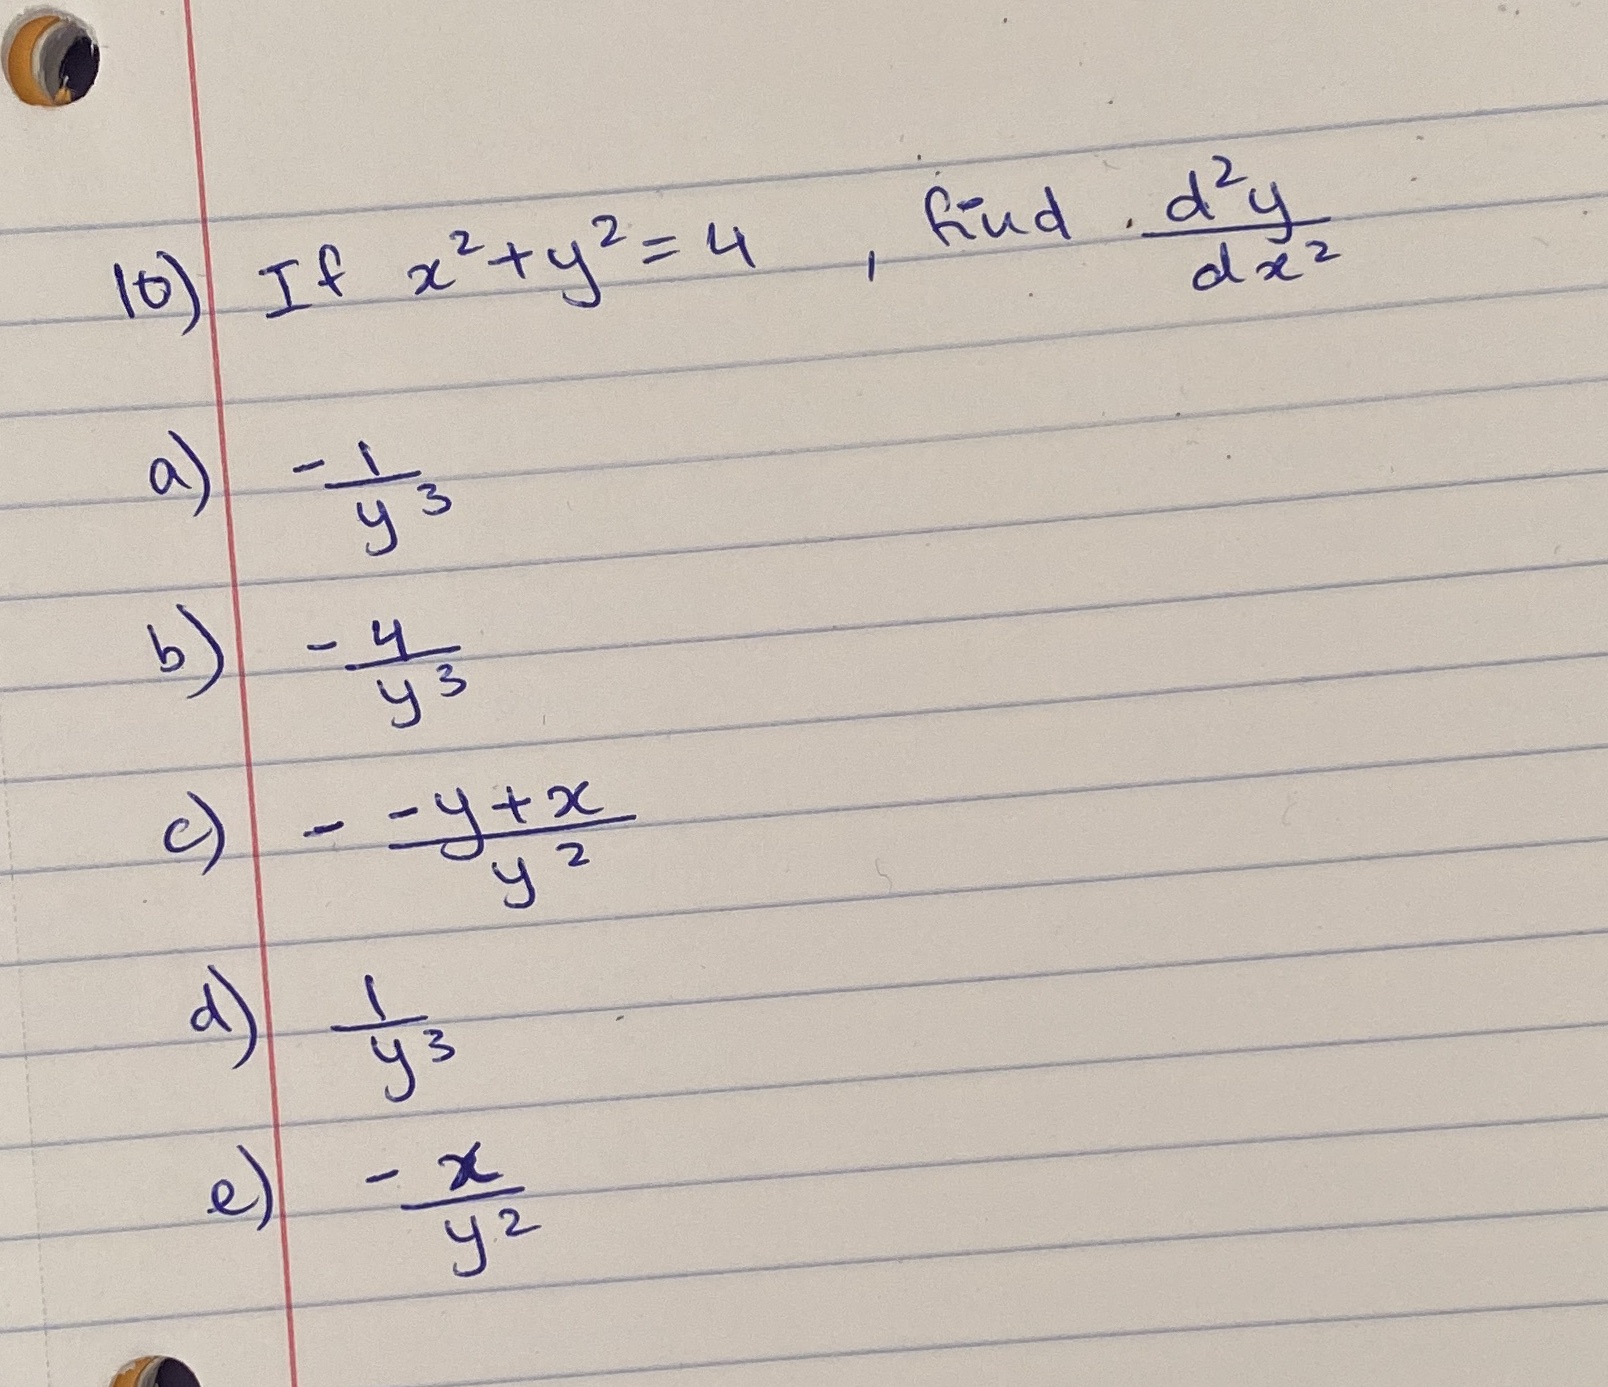 10) If x² + y² = 4 , find d²y/dx²
a) -1/y³
b) -4/y³
c) - (-y+x)/y²
d) 1/y³
e) -x/y²